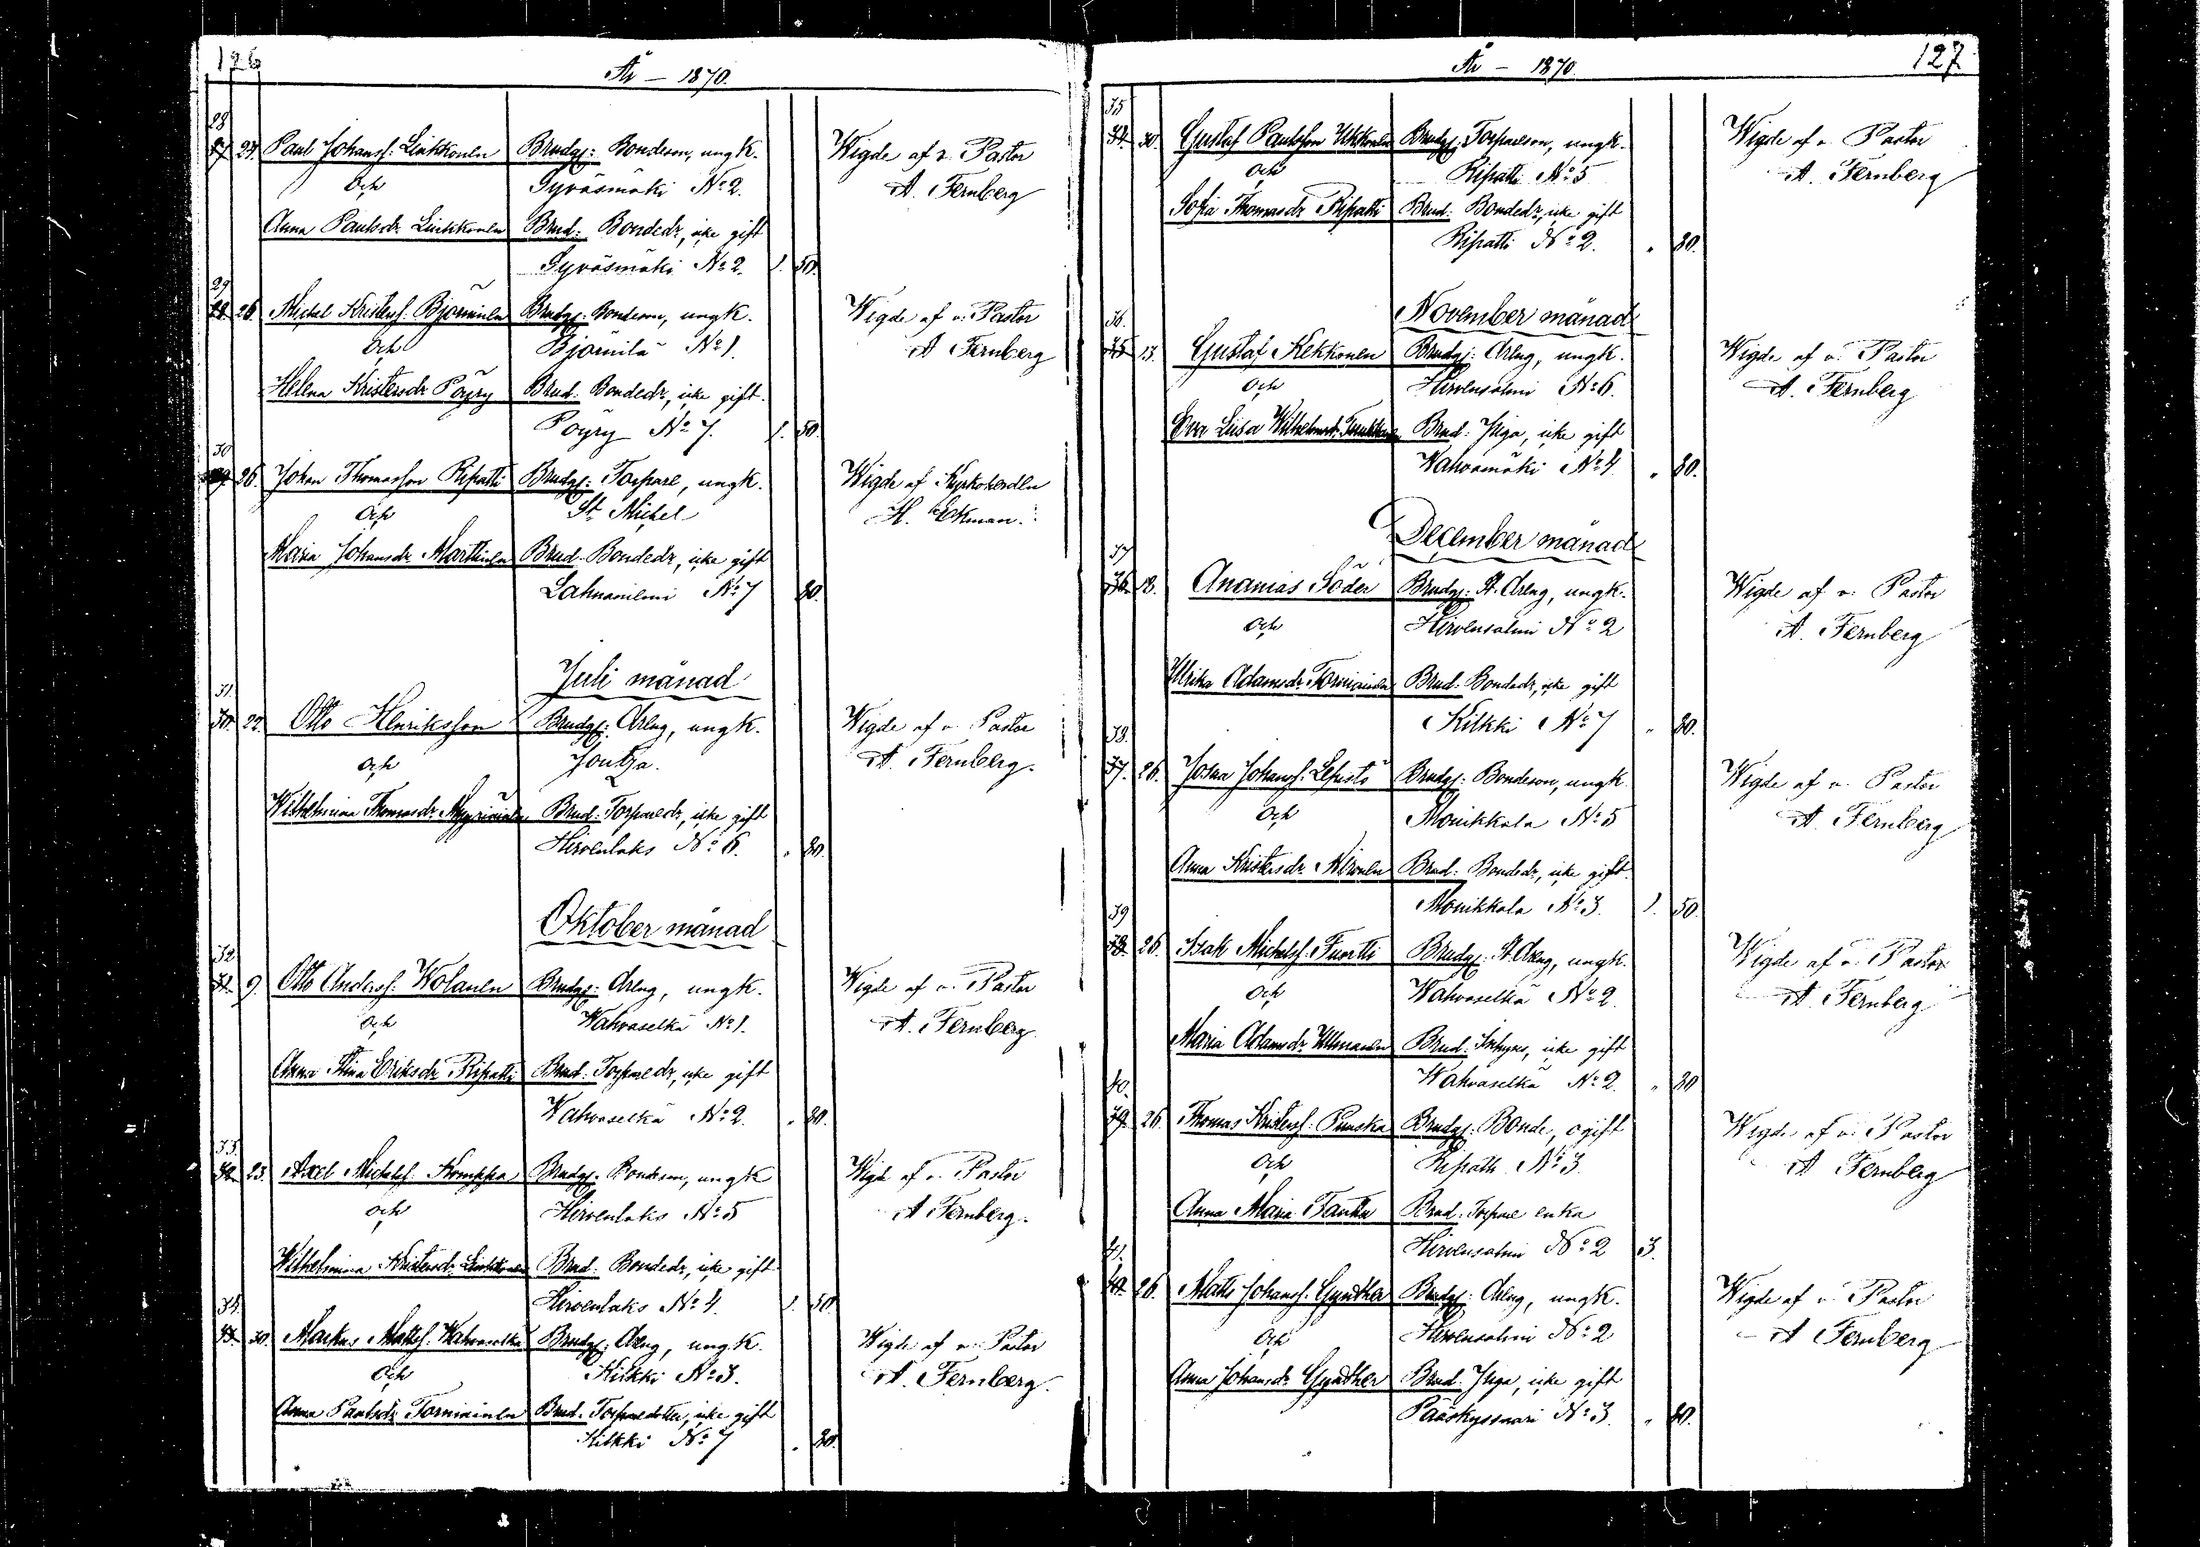 126
År – 1870.
28
27 24. Paul Johansf: Liukkonen Brudg: Bondeson, ungk. Wigde af v. Pastor
och Syväsmäki No 2. A. Fernberg
Anna Paulsdr Liukkonen Brud: Bondedr, icke gift
Syväsmäki No 2. 1. 50.
29
28. 26. Michel Kristersf. Björninen Brudg: Bondeson, ungk. Wigde af v. Pastor
och Björnilä No 1. A Fernberg
Helena Kristersdr Pöyry Brud: Bondedr, icke gift.
Pöyry No 7. 1. 50.
30
29 26. Johan Thomasson Ripatti Brudg: Torpare, ungk. Wigde af Kyrkoherden
och St Michel H. Ekman.
Maria Johansdr Marttinen Brud: Bondedr, icke gift
Lahnaniemi No 7 80.
Juli månad
31.
30. 22. Otto Henriksson Brudg: Dreng, ungk. Wigde af v. Pastor
och Joutsa. A. Fernberg.
Wilhelmina Thomasdr Brud: Torparedr, icke gift
Hirvenlaks No 6. „ 80.
Oktober månad
32
31. 9. Otto Andersf: Wolanen Brudg: Dreng, ungk. Wigde af v. Pastor
och Wahvaselkä No 1. A. Fernberg
Anna Stina Eriksdr Ripatti Brud: Torparedr, icke gift
Wahvaselkä No 2. „ 80.
33.
32 23. Axel Michelsf. Komppa Brudg: Bondeson, ungk Wigde af v. Pastor
och Hirvenlaks No 5 A Fernberg.
Wilhelmina Kristersdr Liukkonen Brud: Bondedr, icke gift
Hirvenlaks No 4. 1. 50.
34.
33. 30. Markus Mattsf. Wahvaselkä Brudg: Dreng, ungk. Wigde af v. Pastor
och Kilkki No 3. A. Fernberg.
Anna Paulsdr Torniainen Brud: Torparedotter, icke gift
Kilkki No 7 „ 80.
År – 1870. 127
35
34. 30. Gustaf Paulsson Ukkonen Brudg: Torpareson, ungk. Wigde af v. Pastor
och Ripatti No 5 A. Fernberg
Sofia Thomasdr Ripatti Brud: Bondedr, icke gift
Ripatti No 2. „ 80.
November månad
36.
35 13. Gustaf Kekkonen Brudg: Dreng, ungk. Wigde af v. Pastor
och Hirvensalmi No 6. A. Fernberg
Eva Lisa Wilhelmsdr Brud: Piga, icke gift
Wahvamäki No 4. „ 80.
December månad
37
36. 18. Ananias Söder Brudg: St. Dreng, ungk. Wigde af v. Pastor
och Hirvensalmi No 2 A. Fernberg
Ulrika Adamsdr Torniainen Brud: Bondedr, icke gift
Kilkki No 7 „ 80.
38.
37. 26. Johan Johansf. Lehisto Brudg: Bondeson, ungk. Wigde af v. Pastor
och Monikkala No 5 A. Fernberg
Anna Kristersdr Hirvonen Brud: Bondedr, icke gift.
Monikkala No 3. 1. 50.
39
38. 26. Isak Michelsf: Tuortti Brudg: St. Dreng, ungk. Wigde af v. Pastor
och Wahvaselkä No 2. A. Fernberg
Maria Adamsdr Ullmanen Brud: Inhyses, icke gift
Wahvaselkä No 2. „ 80
40.
39. 26. Thomas Kristersf. Puuska Brudg: Bonde, ogift Wigde af v. Pastor
och Ripatti No 3. A Fernberg
Anna Maria Tanttu Brud: Torpare enka
Hirvensalmi No 2 3.
41.
40. 26. Matts Johansf. Gynther Brudg: Dreng, ungk. Wigde af v. Pastor
och Hirvensalmi No 2 A Fernberg
Anna Johansdr Gynther Brud: Piga, icke gift
Pääskyssaari No 3. „ 80.